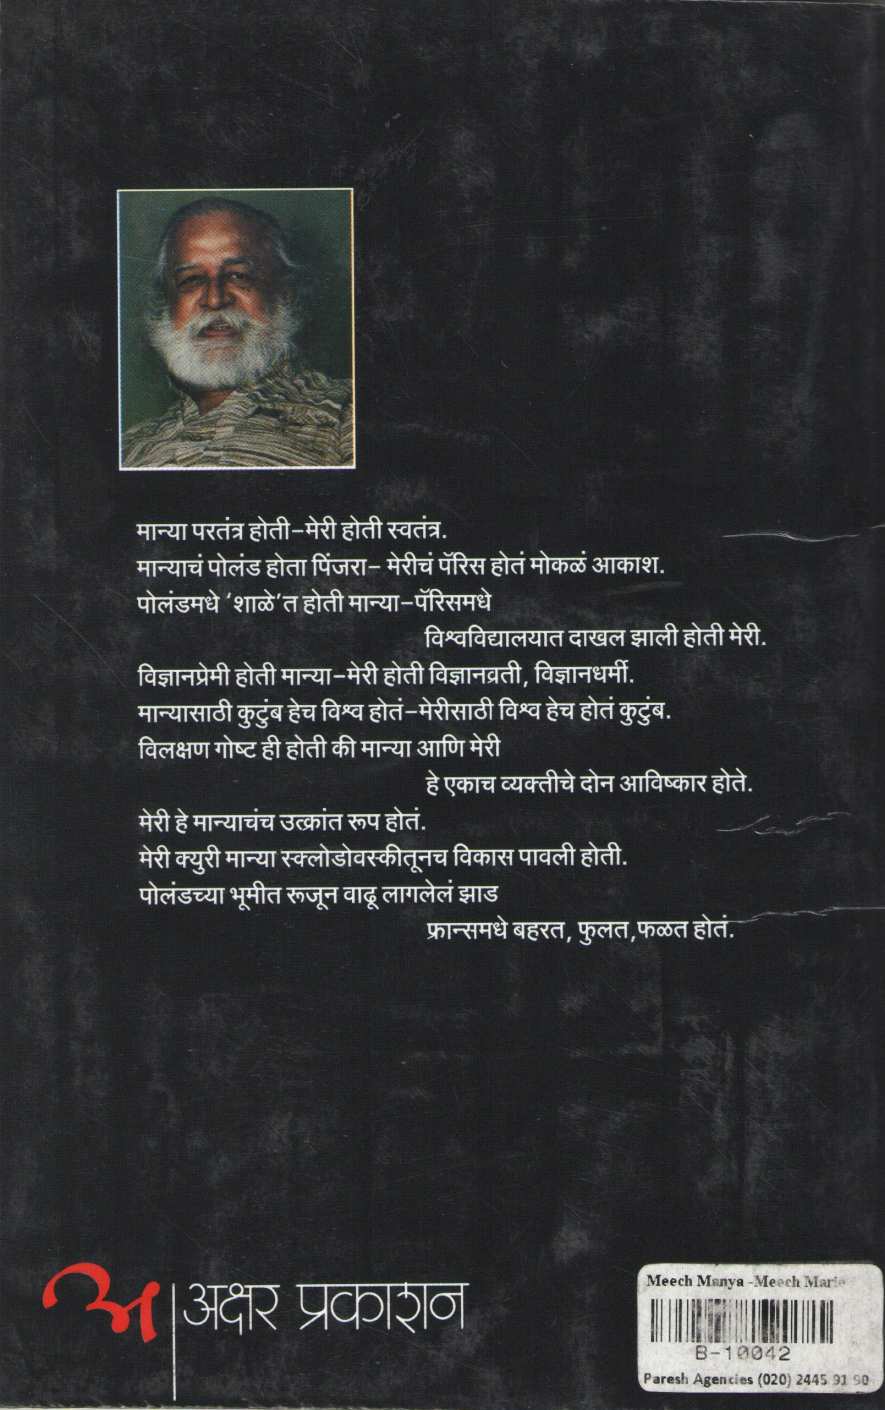 मान्या परतंत्र होती–मेरी होती स्वतंत्र.
मान्याचं पोलंड होता पिंजरा– मेरीचं पॅरिस होतं मोकळं आकाश.
पोलंडमधे ‘शाळे’त होती मान्या–पॅरिसमधे
विश्वविद्यालयात दाखल झाली होती मेरी.
विज्ञानप्रेमी होती मान्या–मेरी होती विज्ञानव्रती, विज्ञानधर्मी.
मान्यासाठी कुटुंब हेच विश्व होतं–मेरीसाठी विश्व हेच होतं कुटुंब.
विलक्षण गोष्ट ही होती की मान्या आणि मेरी
हे एकाच व्यक्तीचे दोन आविष्कार होते.
मेरी हे मान्याचंच उत्क्रांत रूप होतं.
मेरी क्युरी मान्या स्क्लोडोवस्कीतूनच विकास पावली होती.
पोलंडच्या भूमीत रूजून वाढू लागलेलं झाड
फ्रान्समधे बहरत, फुलत,फळत होतं.
अ
अक्षर प्रकाशन
Meech Manya -Meech Marie
B-10042
Paresh Agencies (020) 2445 91 90